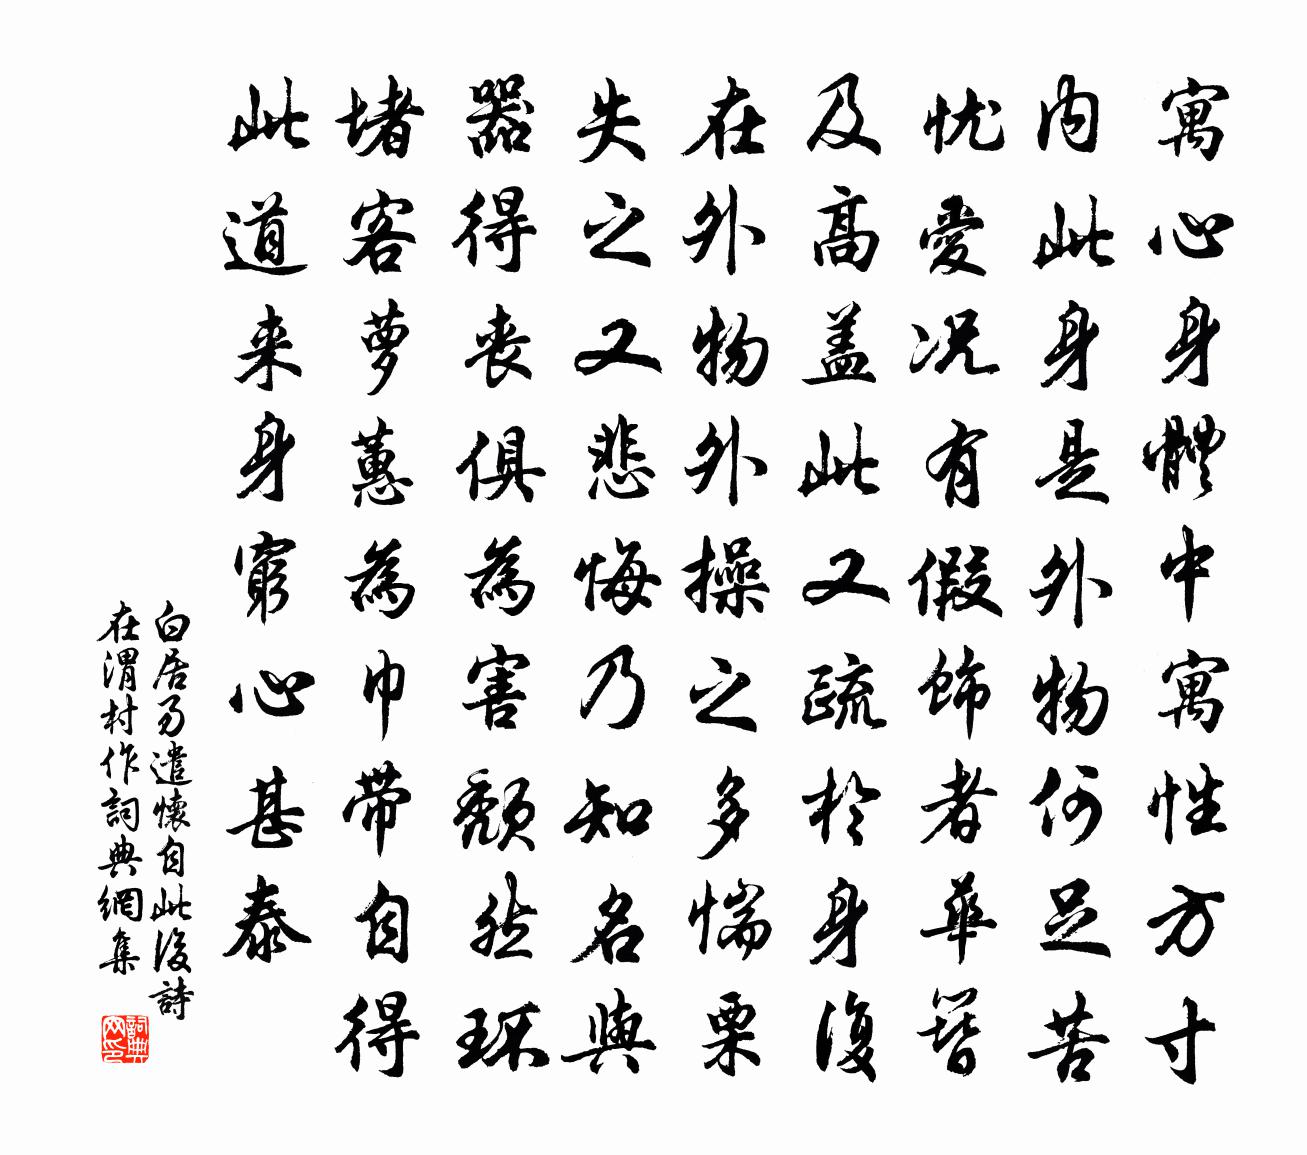 寓心身體中寓性方寸
内此身是外物何足苦
忧愛况有假飾者華簪
及高盖此又疏於身復
在外物外操之多惴栗
失之又悲悔乃知名與
器得喪俱為害頹然環
堵客蘿蕙為巾帶自得
此道来身窮心甚泰
白居易遣懷自此後詩
在渭村作詞典網集
詞典网印